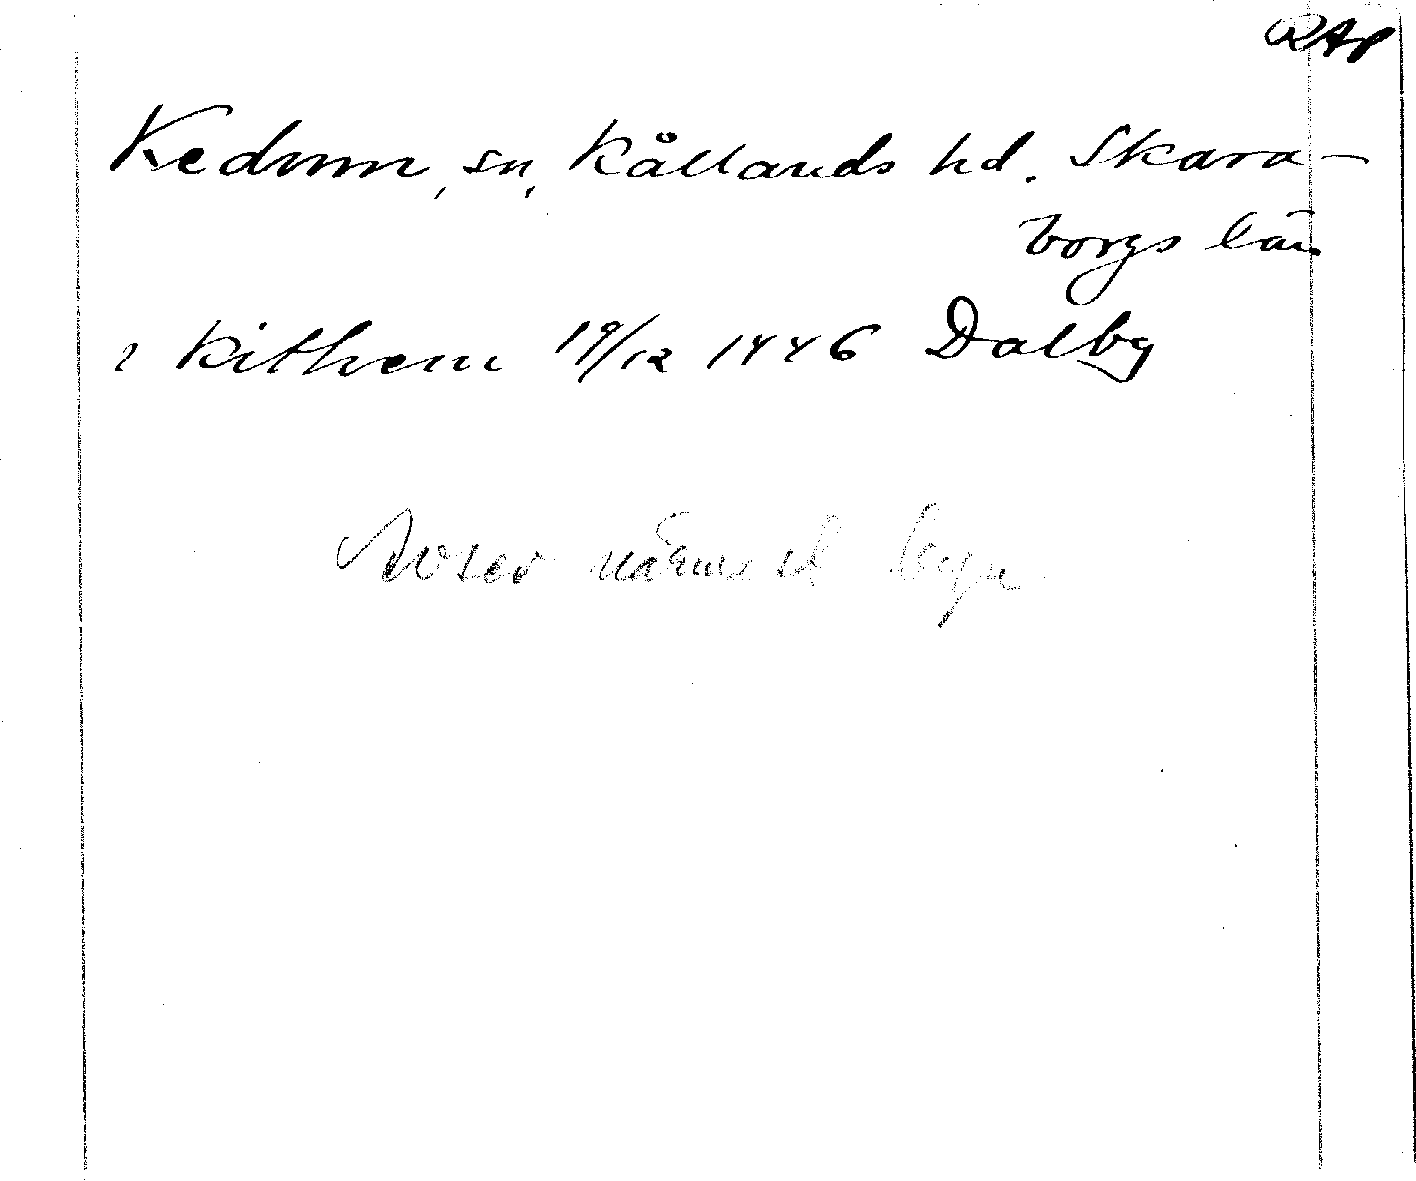 RAp
Kedum, sn, Kållands hd. Skara-
borgs län
i Kithem 19/12 1446 Dalby
Avser närmast byn